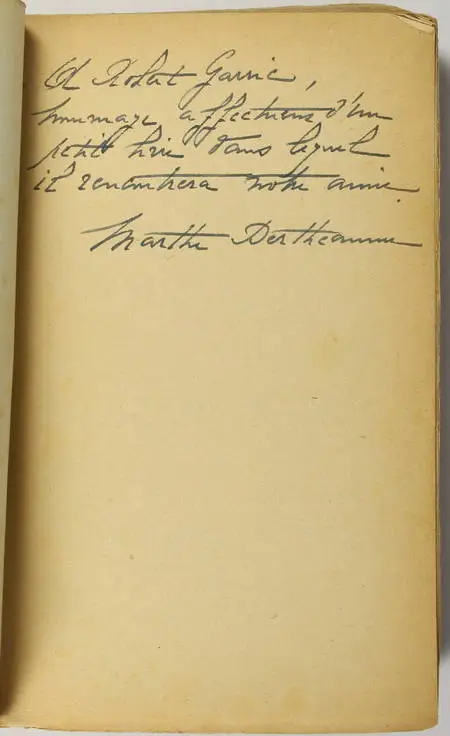 A Robert Garric,
hommage affectueux d'un
petit livre dans lequel
il rencontrera notre amie.
Marthe Bertheaume